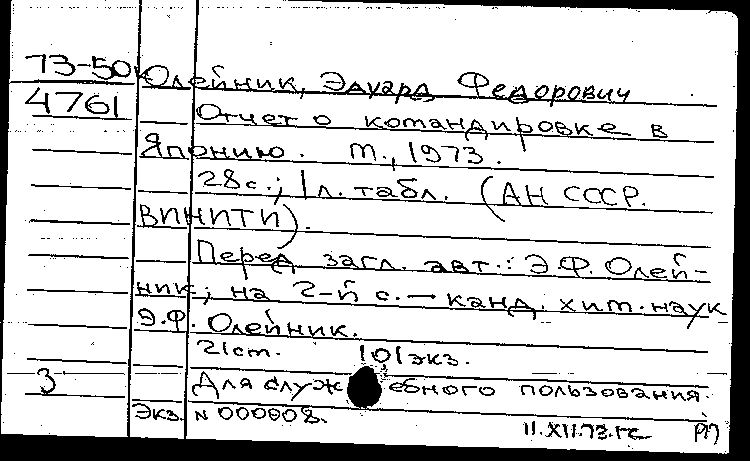 73-50 Олейник, Эдуард Федорович
4761 Отчет о командировке в
Японию. М., 1973.
28с.; 1 л. табл. (АН СССР.
ВИНИТИ).
Перед загл. авт.: Э.Ф. Олей-
ник; на 2-й с. — канд. хим. наук
Э.Ф. Олейник.
21ст. 101экз.
3 Для служебного пользования.
Экз. N 000008.
11.XII.73.гс РП